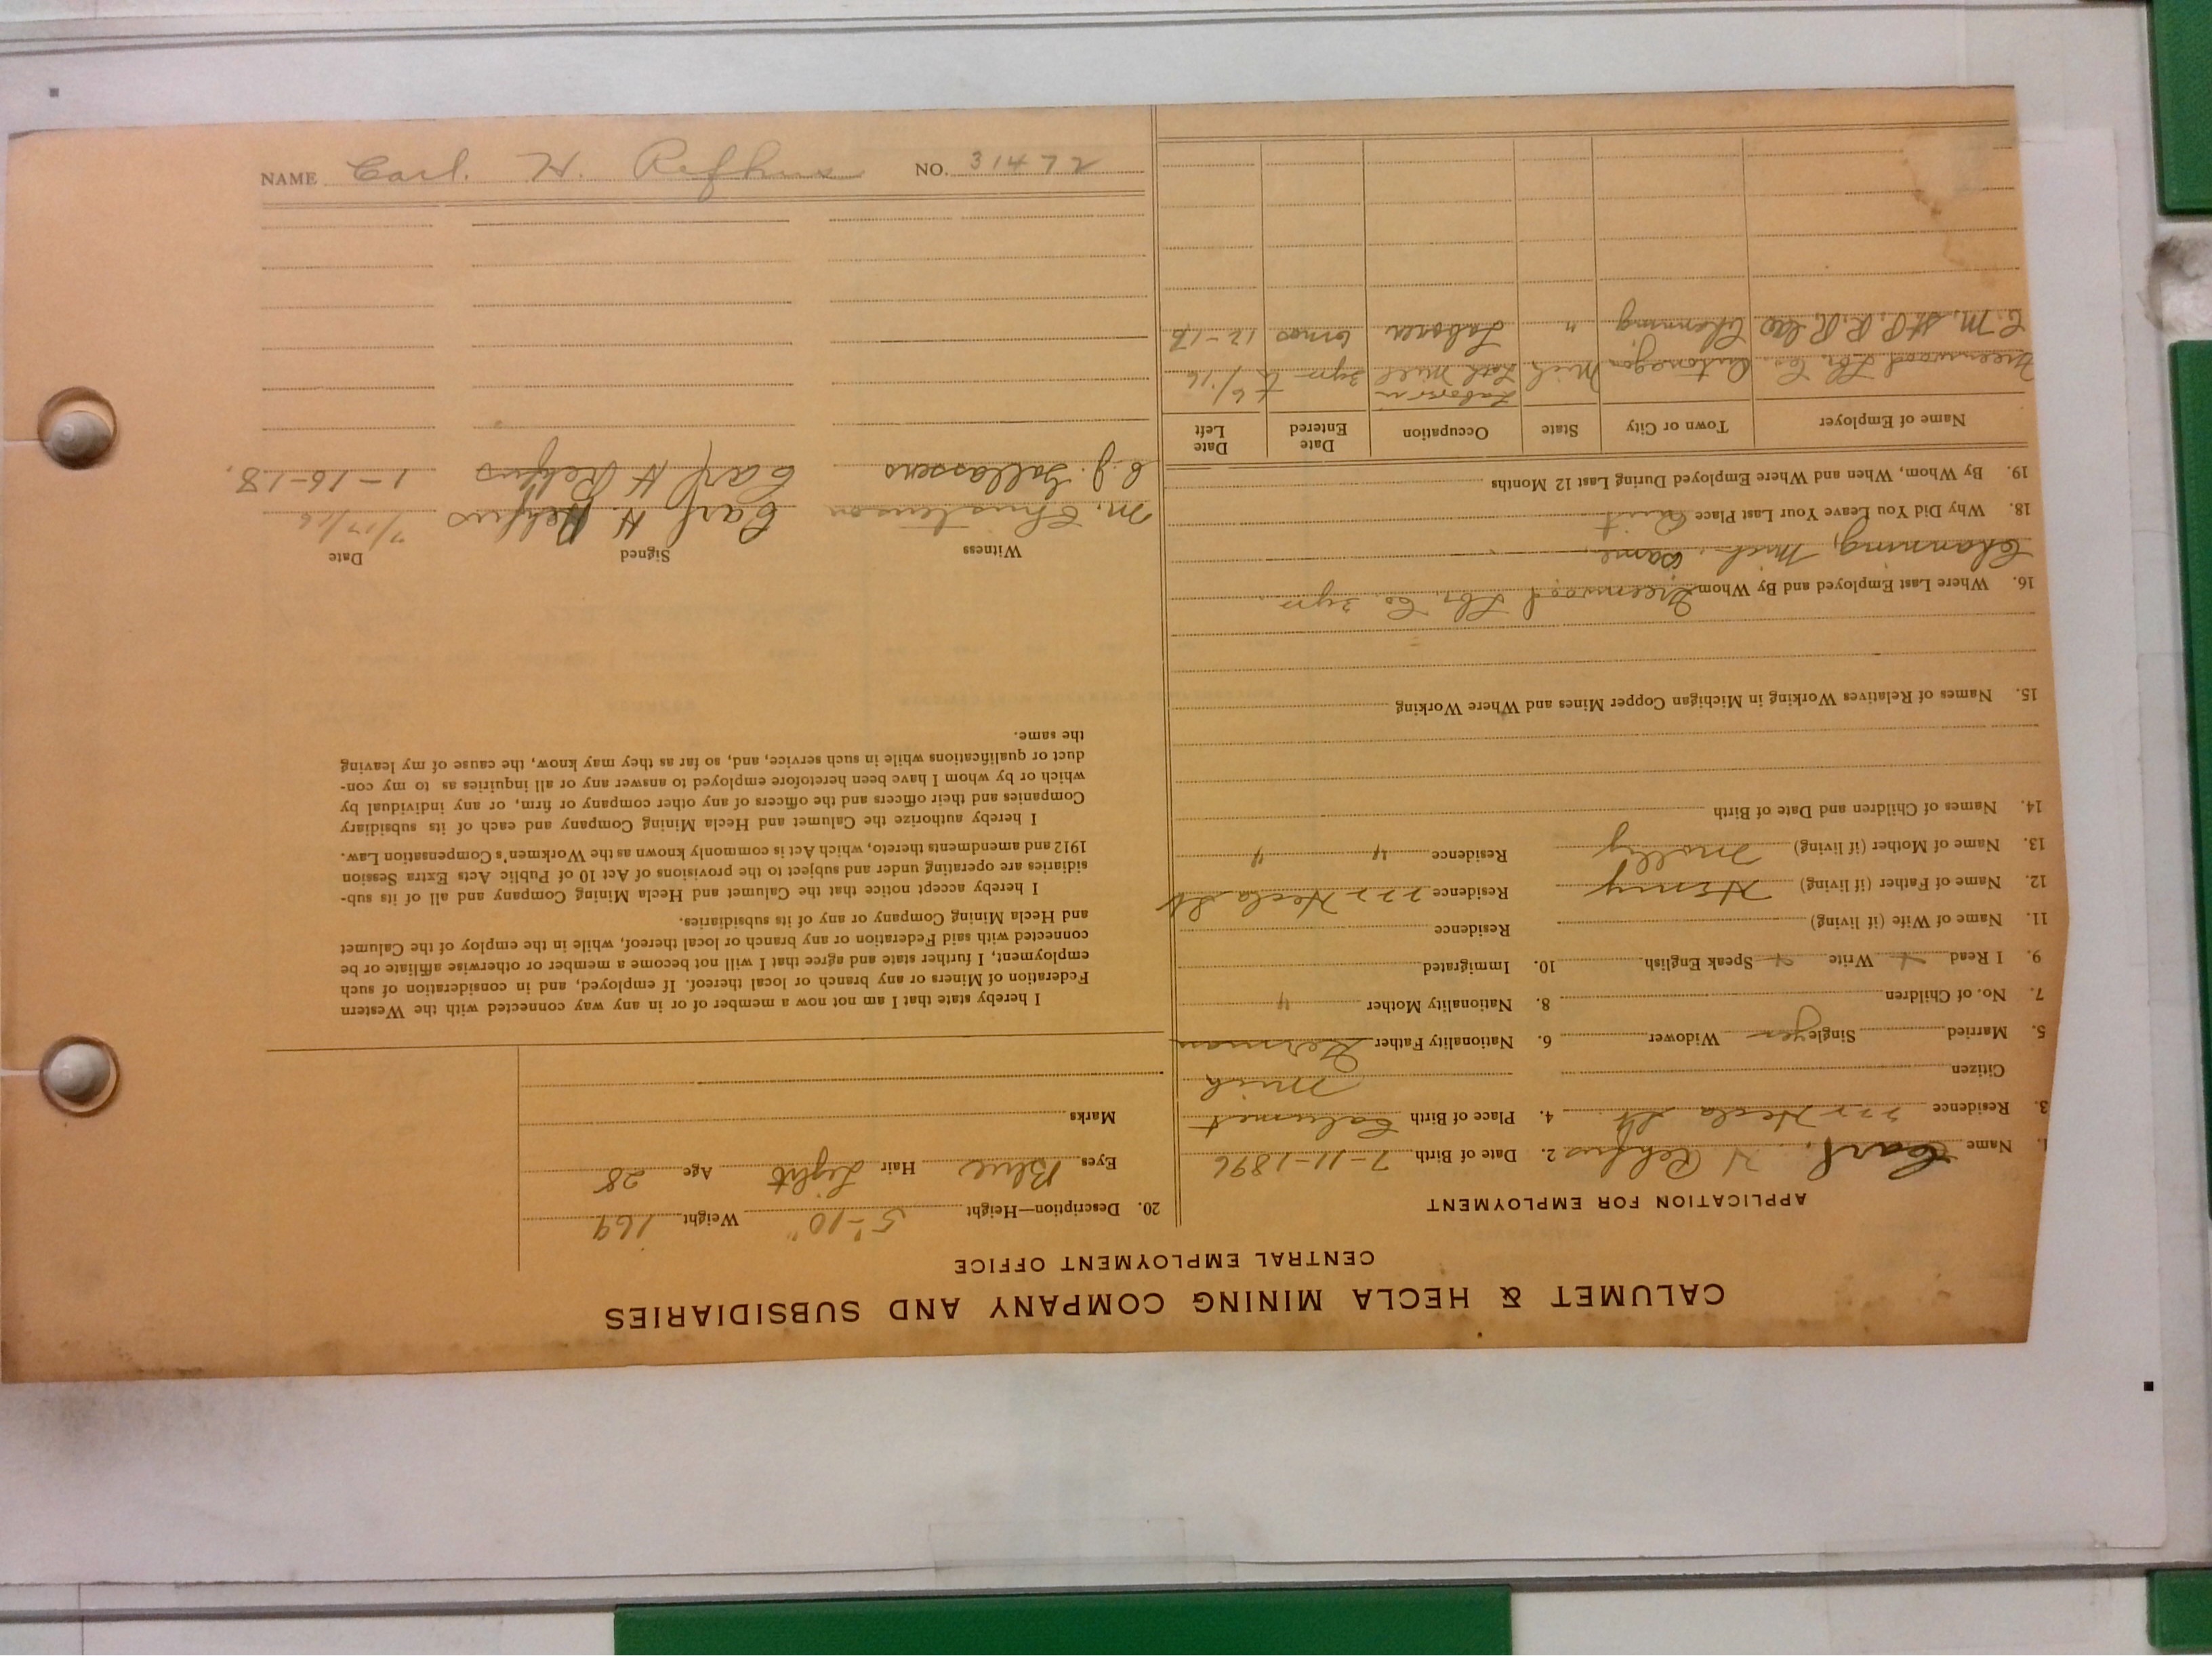 CALUMET & HECLA MINING COMPANY AND SUBSIDIARIES
CENTRAL EMPLOYMENT OFFICE
APPLICATION FOR EMPLOYMENT
1. Name Carl H Rehfus 2. Date of Birth 7-11-1896
3. Residence Hecla St. 4. Place of Birth Calumet
Citizen Mich
5. Married Single yes Widower 6. Nationality Father German
7. No. of Children 8. Nationality Mother "
9. I Read Write Speak English 10. Immigrated
11. Name of Wife (if living) Residence
12. Name of Father (if living) Henry Residence Hecla St
13. Name of Mother (if living) Molly Residence " "
14. Names of Children and Date of Birth
15. Names of Relatives Working in Michigan Copper Mines and Where Working
16. Where Last Employed and By Whom Greenwood Lbr. Co. 2yrs.
Channing, Mich. Same
18. Why Did You Leave Your Last Place Quit
19. By Whom, When and Where Employed During Last 12 Months
Name of Employer Town or City State Occupation Date Entered Date Left
Greenwood Lbr. Co. Ontonagon Mich Laborer in Lath Mill 2yrs 6/16
C. M. St P. R. R. Co Channing " Laborer 6mos 12-17
20. Description—Height 5'-10" Weight 169
Eyes Blue Hair Light Age 28
Marks
I hereby state that I am not now a member of or in any way connected with the Western
Federation of Miners or any branch or local thereof. If employed, and in consideration of such
employment, I further state and agree that I will not become a member or otherwise affiliate or be
connected with said Federation or any branch or local thereof, while in the employ of the Calumet
and Hecla Mining Company or any of its subsidiaries.
I hereby accept notice that the Calumet and Hecla Mining Company and all of its sub-
sidiaries are operating under and subject to the provisions of Act 10 of Public Acts Extra Session
1912 and amendments thereto, which Act is commonly known as the Workmen's Compensation Law.
I hereby authorize the Calumet and Hecla Mining Company and each of its subsidiary
Companies and their officers and the officers of any other company or firm, or any individual by
which or by whom I have been heretofore employed to answer any or all inquiries as to my con-
duct or qualifications while in such service, and, so far as they may know, the cause of my leaving
the same.
Witness Signed Date
M. Christenson Carl H. Rehfus 7/17/16
C. J. Carl H Rehfus 1-16-18.
NAME Carl. H. Refhus NO. 31472